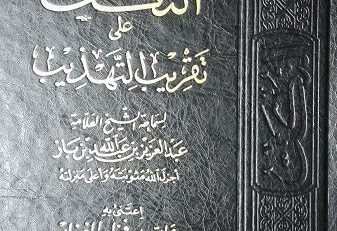 النكت
على
تقريب التهذيب
لسماحة الشيخ العلامة
عبد العزيز بن عبد الله بن باز
أجزل الله مثوبته وأعلى منزلته
اعتنى به